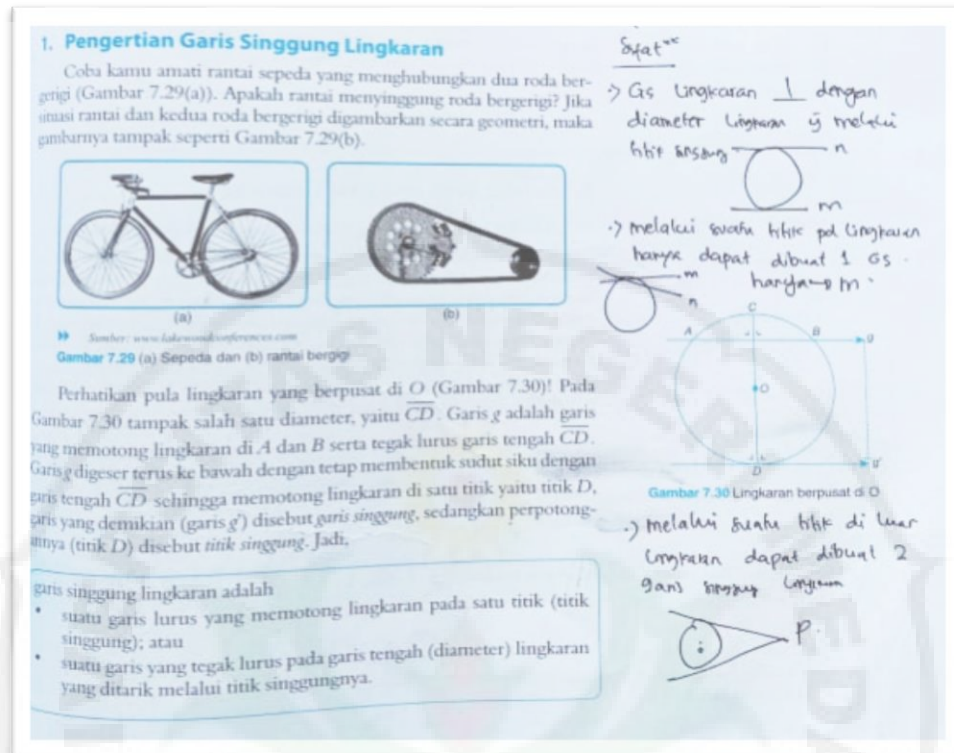 1. Pengertian Garis Singgung Lingkaran
Coba kamu amati rantai sepeda yang menghubungkan dua roda ber-
gerigi (Gambar 7.29(a)). Apakah rantai menyinggung roda bergerigi? Jika
situasi rantai dan kedua roda bergerigi digambarkan secara geometri, maka
gambarnya tampak seperti Gambar 7.29(b).
(a)
(b)
Sumber: www.lakewoodconferences.com
Gambar 7.29 (a) Sepeda dan (b) rantai bergigi
Perhatikan pula lingkaran yang berpusat di O (Gambar 7.30)! Pada
Gambar 7.30 tampak salah satu diameter, yaitu CD. Garis g adalah garis
yang memotong lingkaran di A dan B serta tegak lurus garis tengah CD.
Garis g digeser terus ke bawah dengan tetap membentuk sudut siku dengan
garis tengah CD sehingga memotong lingkaran di satu titik yaitu titik D,
garis yang demikian (garis g') disebut garis singgung, sedangkan perpotong-
annya (titik D) disebut titik singgung. Jadi,
garis singgung lingkaran adalah
• suatu garis lurus yang memotong lingkaran pada satu titik (titik
singgung); atau
• suatu garis yang tegak lurus pada garis tengah (diameter) lingkaran
yang ditarik melalui titik singgungnya.
Sifat"
.) Gs lingkaran ⊥ dengan
diameter lingkaran yg melalui
titik singgung
n
m
.) melalui suatu titik pd lingkaran
hanya dapat dibuat 1 Gs.
m
hanya m.
n
C
A
B
g
O
D
g'
Gambar 7.30 Lingkaran berpusat di O
.) melalui suatu titik di luar
lingkaran dapat dibuat 2
garis singgung lingkaran
P.
NEGERI
MED